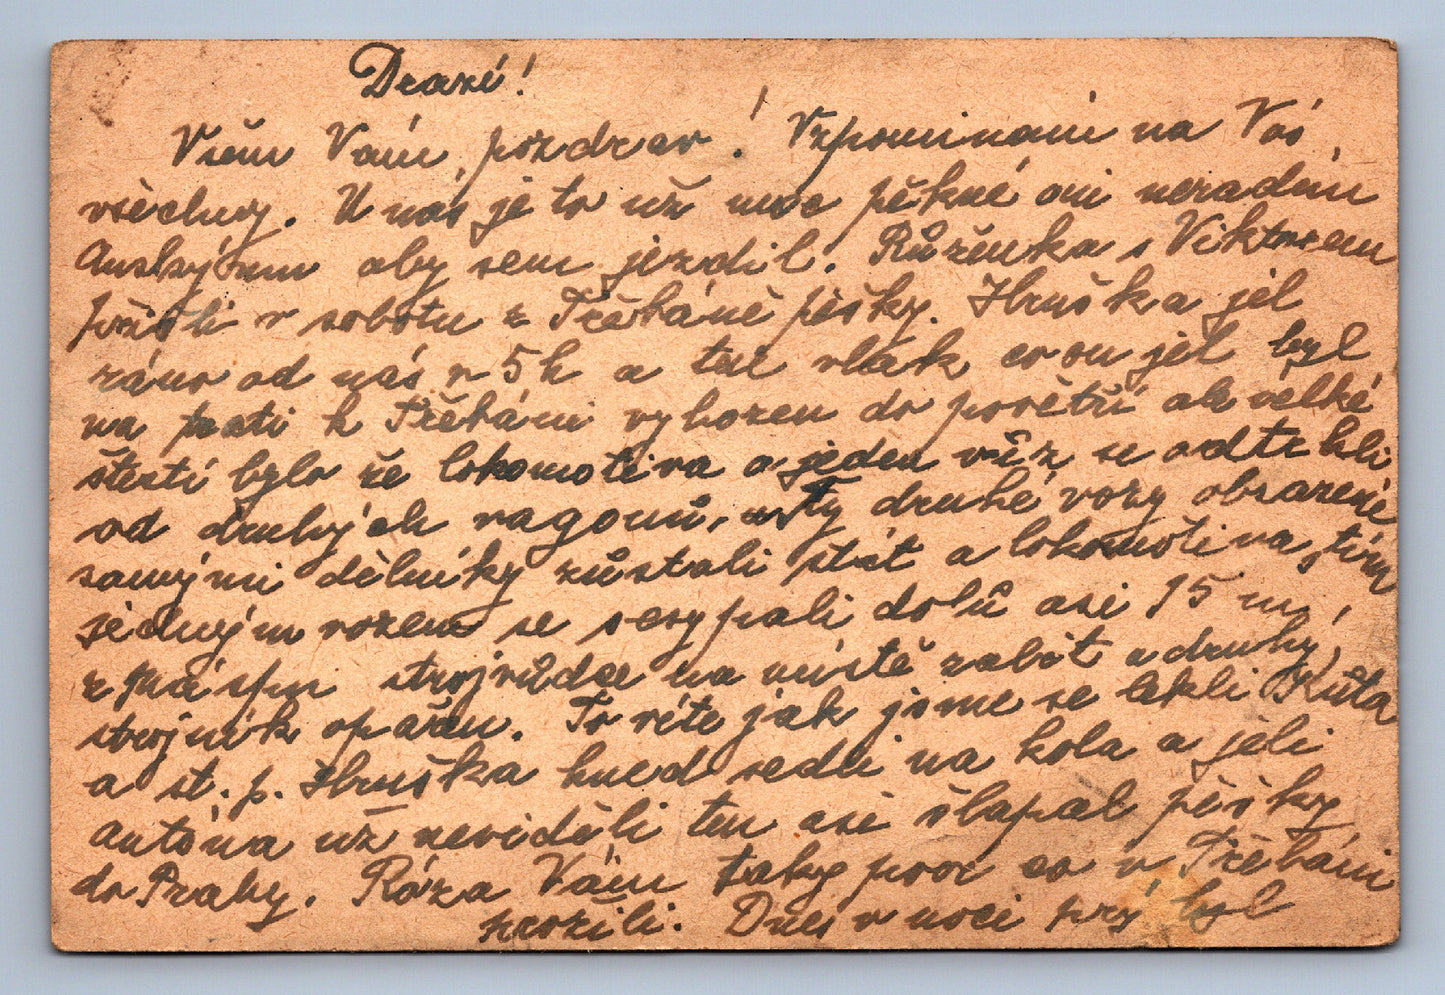 Drazí!
Všem Vám pozdrav! Vzpomínám na Vás
všechny. U nás je to už moc pěkné ani neradím
aby sem jezdil. Růženka s Viktorem
přišli v sobotu z Třebáně pěšky. Hruška jel
ráno od nás v 5h a ten vlak co on jel byl
na trati k Třebáni vyhozen do povětří ale velké
štěstí bylo že lokomotiva a jeden vůz se odtrhli
od druhých vagonů, Ty druhé vozy obsazené
samými dělníky zůstali stát a lokomotiva, tím
jedným vozem se sesypali dolů asi 15 m,
z strojvůdce na místě zabit a druhý
strojník opařen. To víte jak jsme se lekli Růža
a st. p. Hruška hned sedli na kola a jeli
Antóna už neviděli ten asi šlapal pěšky
do Prahy. Róza Vám taky poví co v Třebáni
prožili. Dnes v noci prý byl